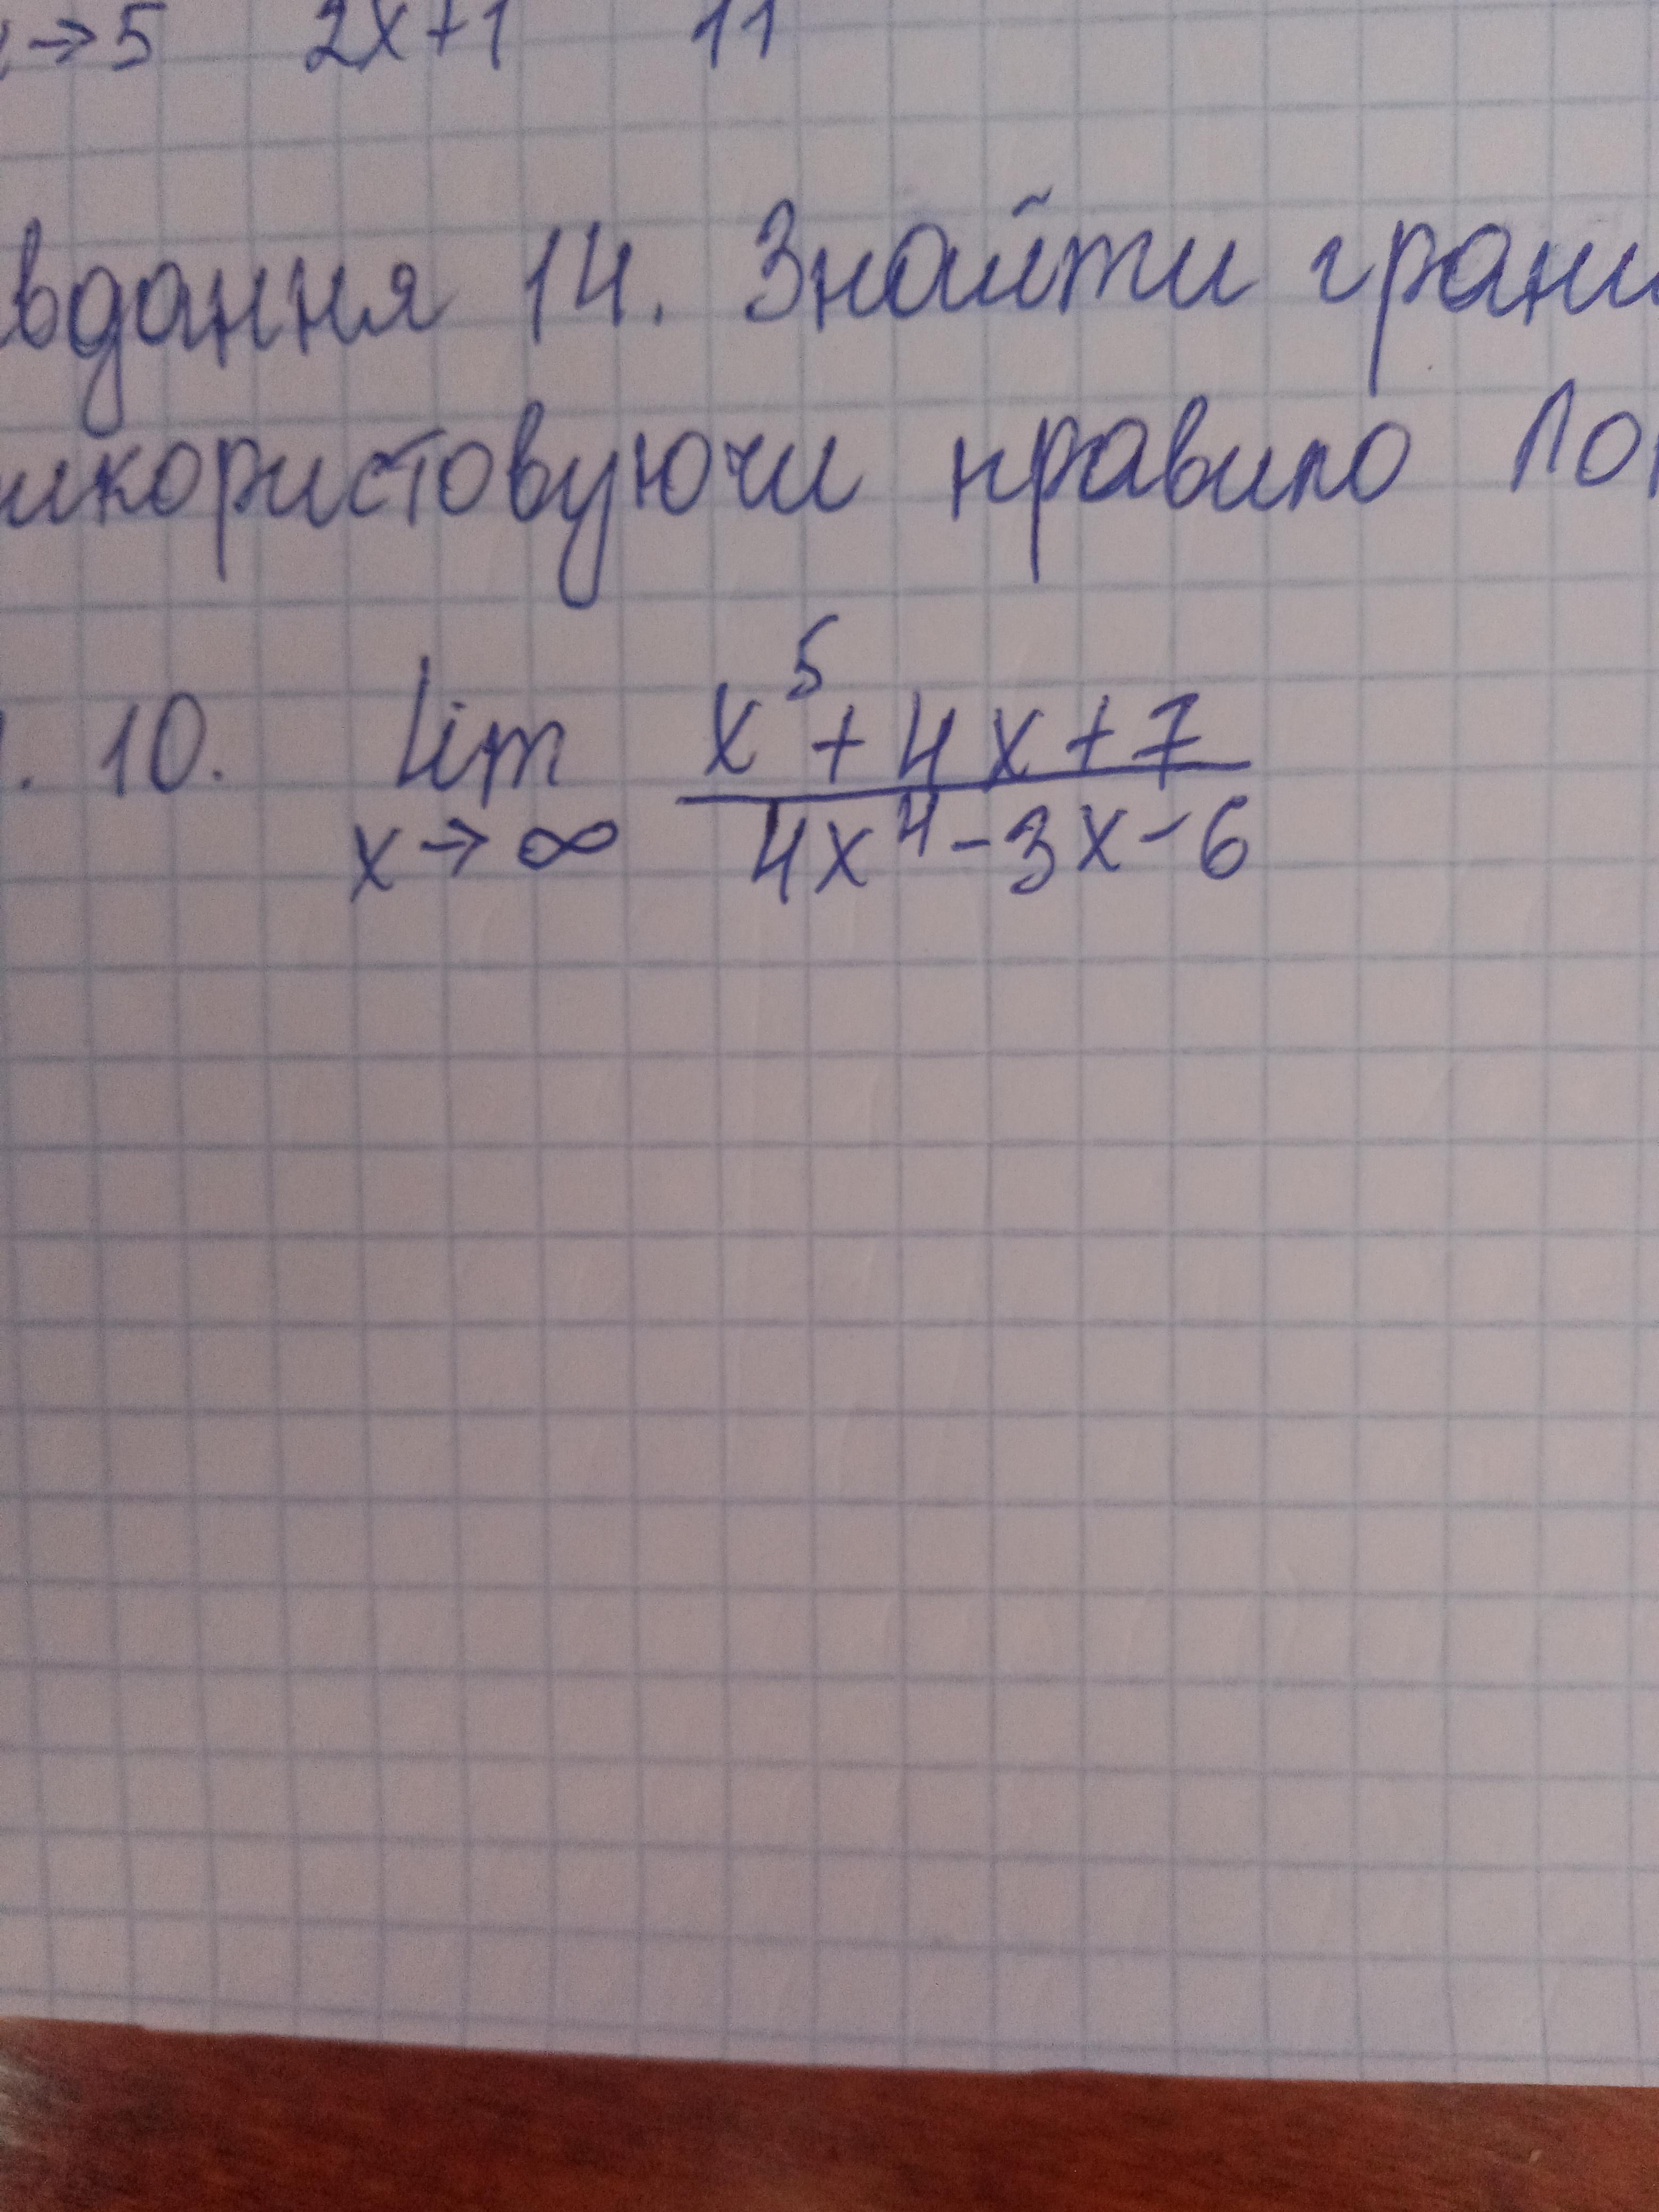 →5 2x+1 11
вдання 14. Знайти грани
икористовуючи правило Лоп
. 10. lim x⁵+4x+7
x→∞ 4x⁴-3x-6